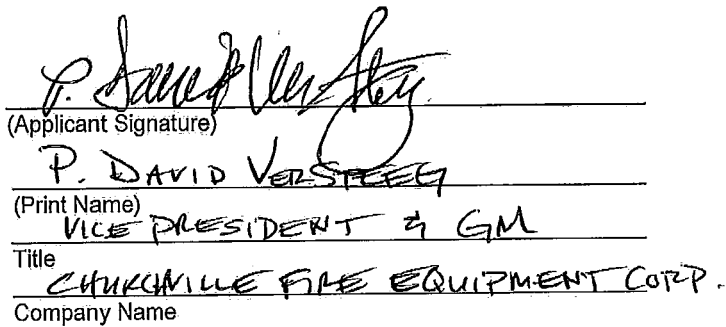 P. David VerSteeg
(Applicant Signature)
P. DAVID VERSTEEG
(Print Name)
VICE PRESIDENT & GM
Title
CHURCHVILLE FIRE EQUIPMENT CORP.
Company Name